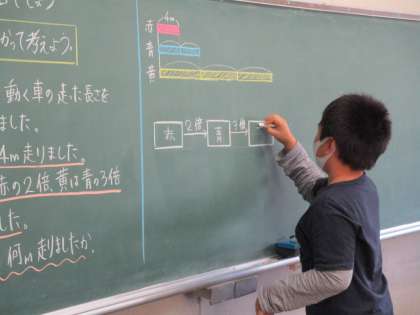 かって考えよう。
動く車の走った長さを
ました。
4m走りました。
赤の2倍、黄は青の3倍
した。
何m走りましたか。
4m
赤
青
黄
赤 2倍 青 3倍